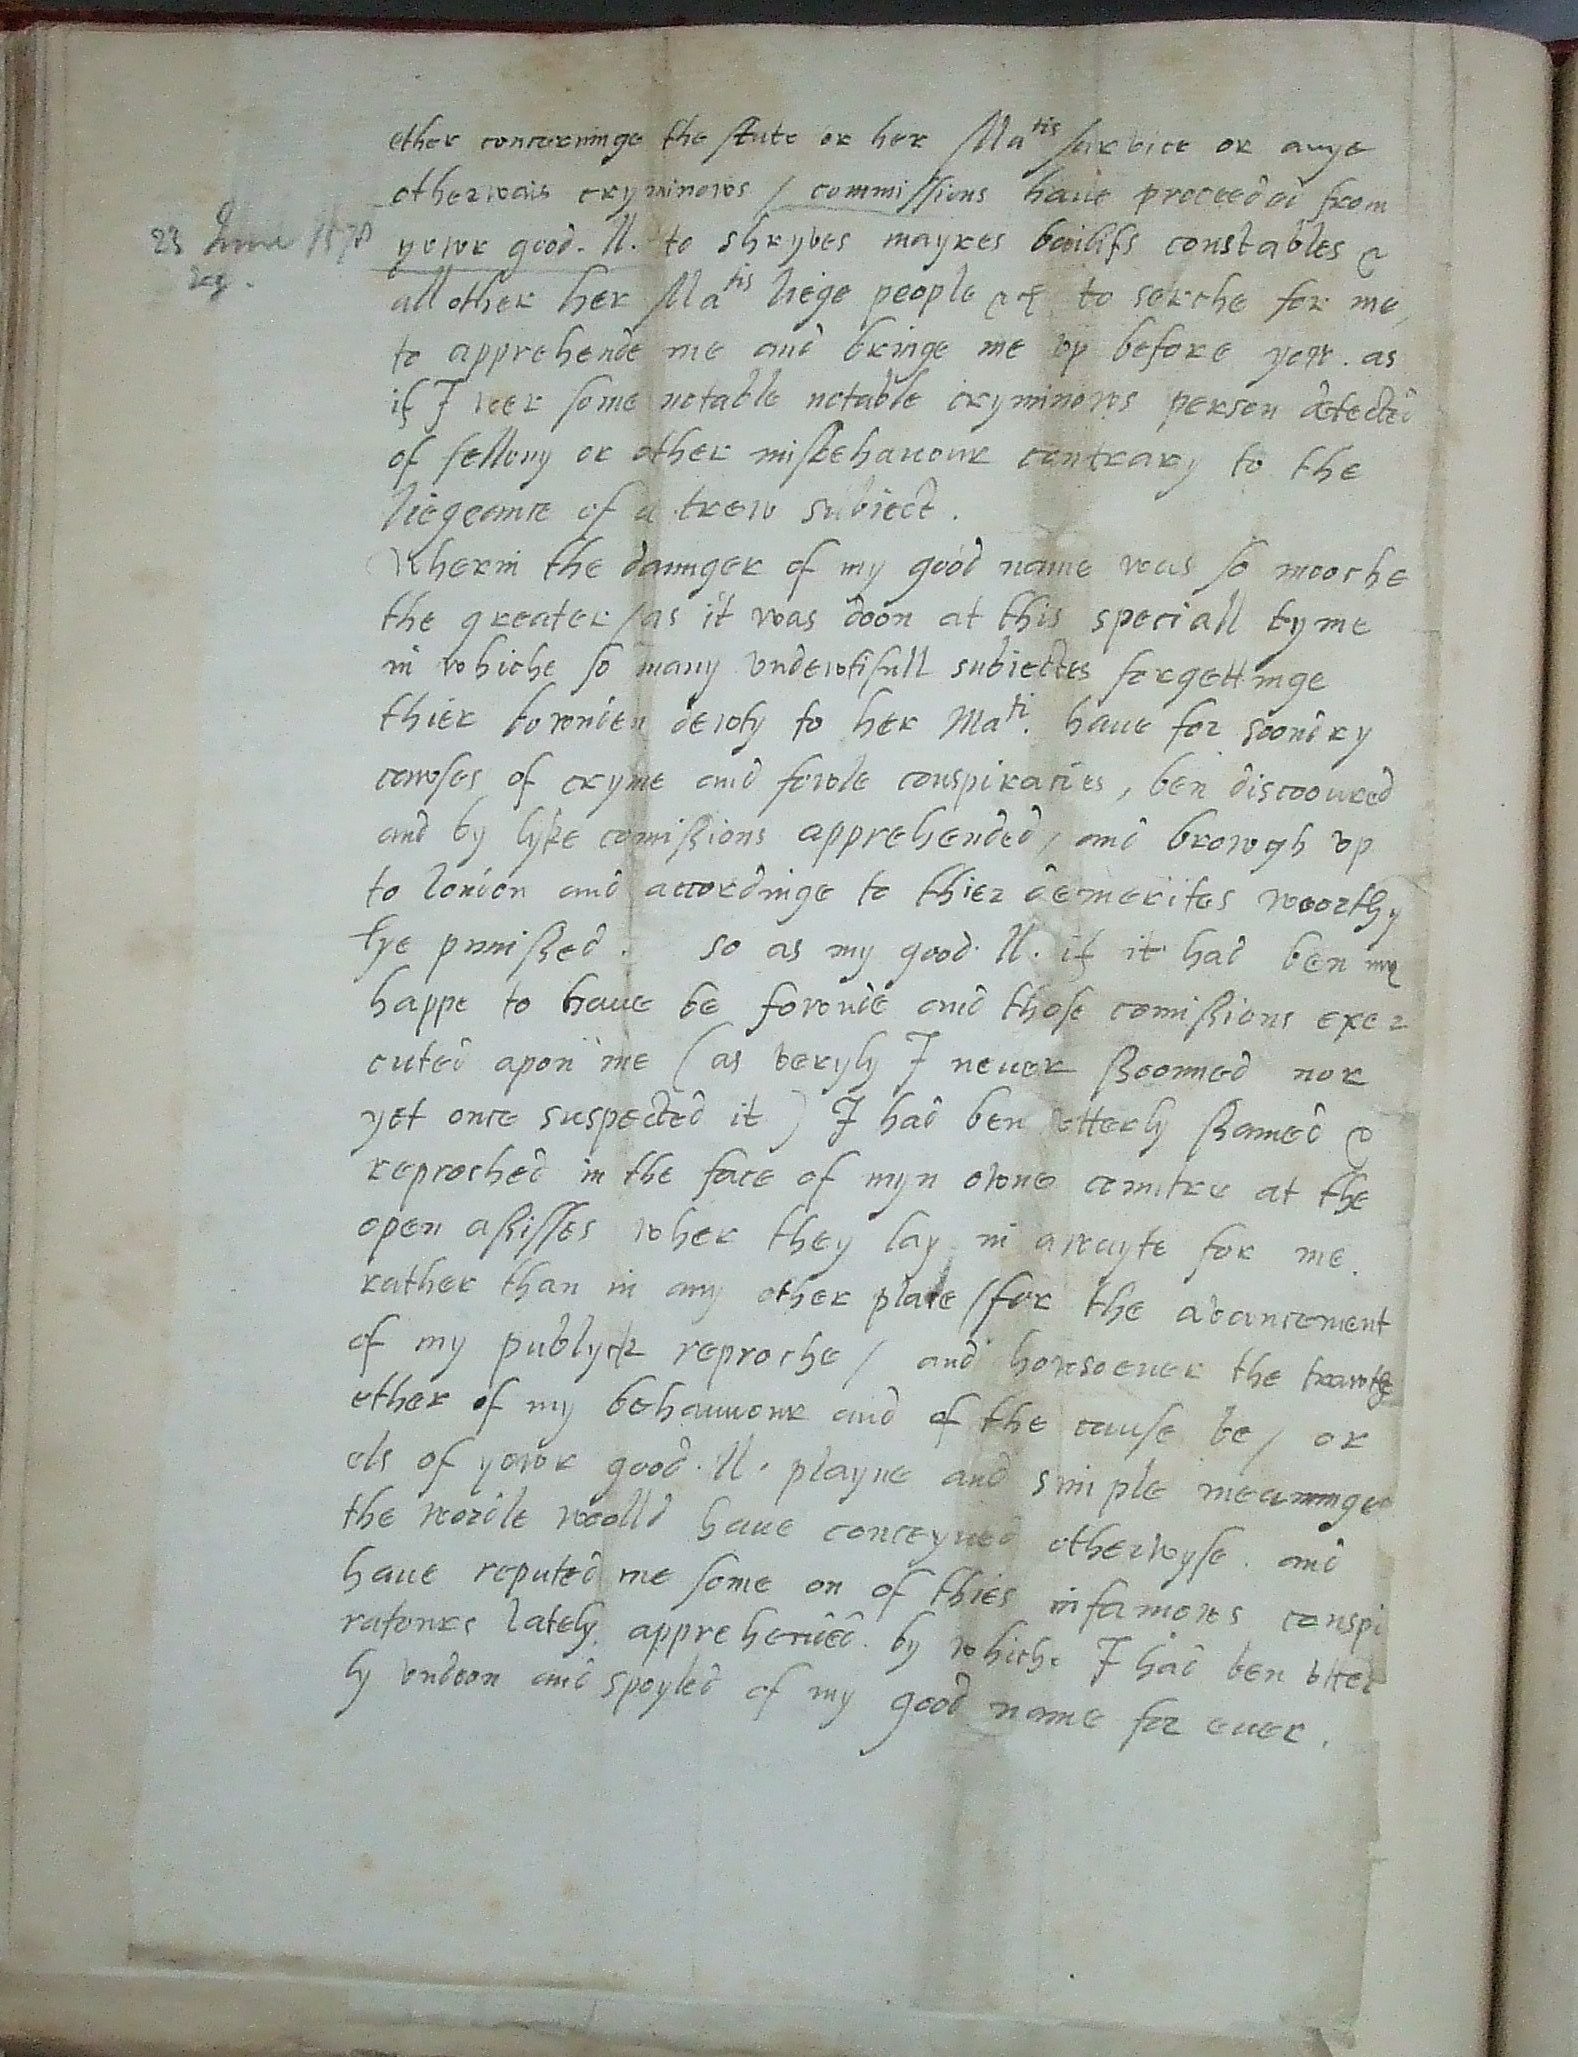 ether concerninge the state or her Ma^tis sarvice or anye
otherwais cryminows / commissions have proceeded from
23 June 1570 yowr good. ll. to shryves mayres bailifs constables &
all other her Ma^tis liege people &c to serche for me,
to apprehende me and bringe me vp before yow. as
if I wer some notable notable cryminows person detected
of fellony or other misbehavour contrary to the
liegeance of a trew subiect.
Wherin the daunger of my good name was so mooche
the greater / as it was doon at this speciall tyme
in whiche so many vndewtifull subiectes forgettinge
thier bownden dewty to her Ma^ti. have for soondry
cawses of cryme and fowle conspiracies, ben discooured
and by lyke comissions apprehended / and browgh vp
to london and accordinge to thier demerites woorthy
lye punished. So as my good. ll. if it had ben my
happe to have be fownde and those comissions exe=
cuted apon me (as veryly I never shoonned nor
yet once suspected it) I had ben vtterly shamed &
reproched in the face of myn owne contre at the
open assisses wher they lay in awayte for me.
rather than in any other place / for the avancement
of my publyck reproche / and howsoever the trawthe
ether of my behavuour and of the cause be / or
els of yowr good. ll. playne and simple meaninge
the worlde woolld have conceyved otherwyse. and
have reputed me some on of thies infamows conspi
ratours lately apprehended. by which I had ben vtter
ly vndoon and spoyled of my good name for ever.